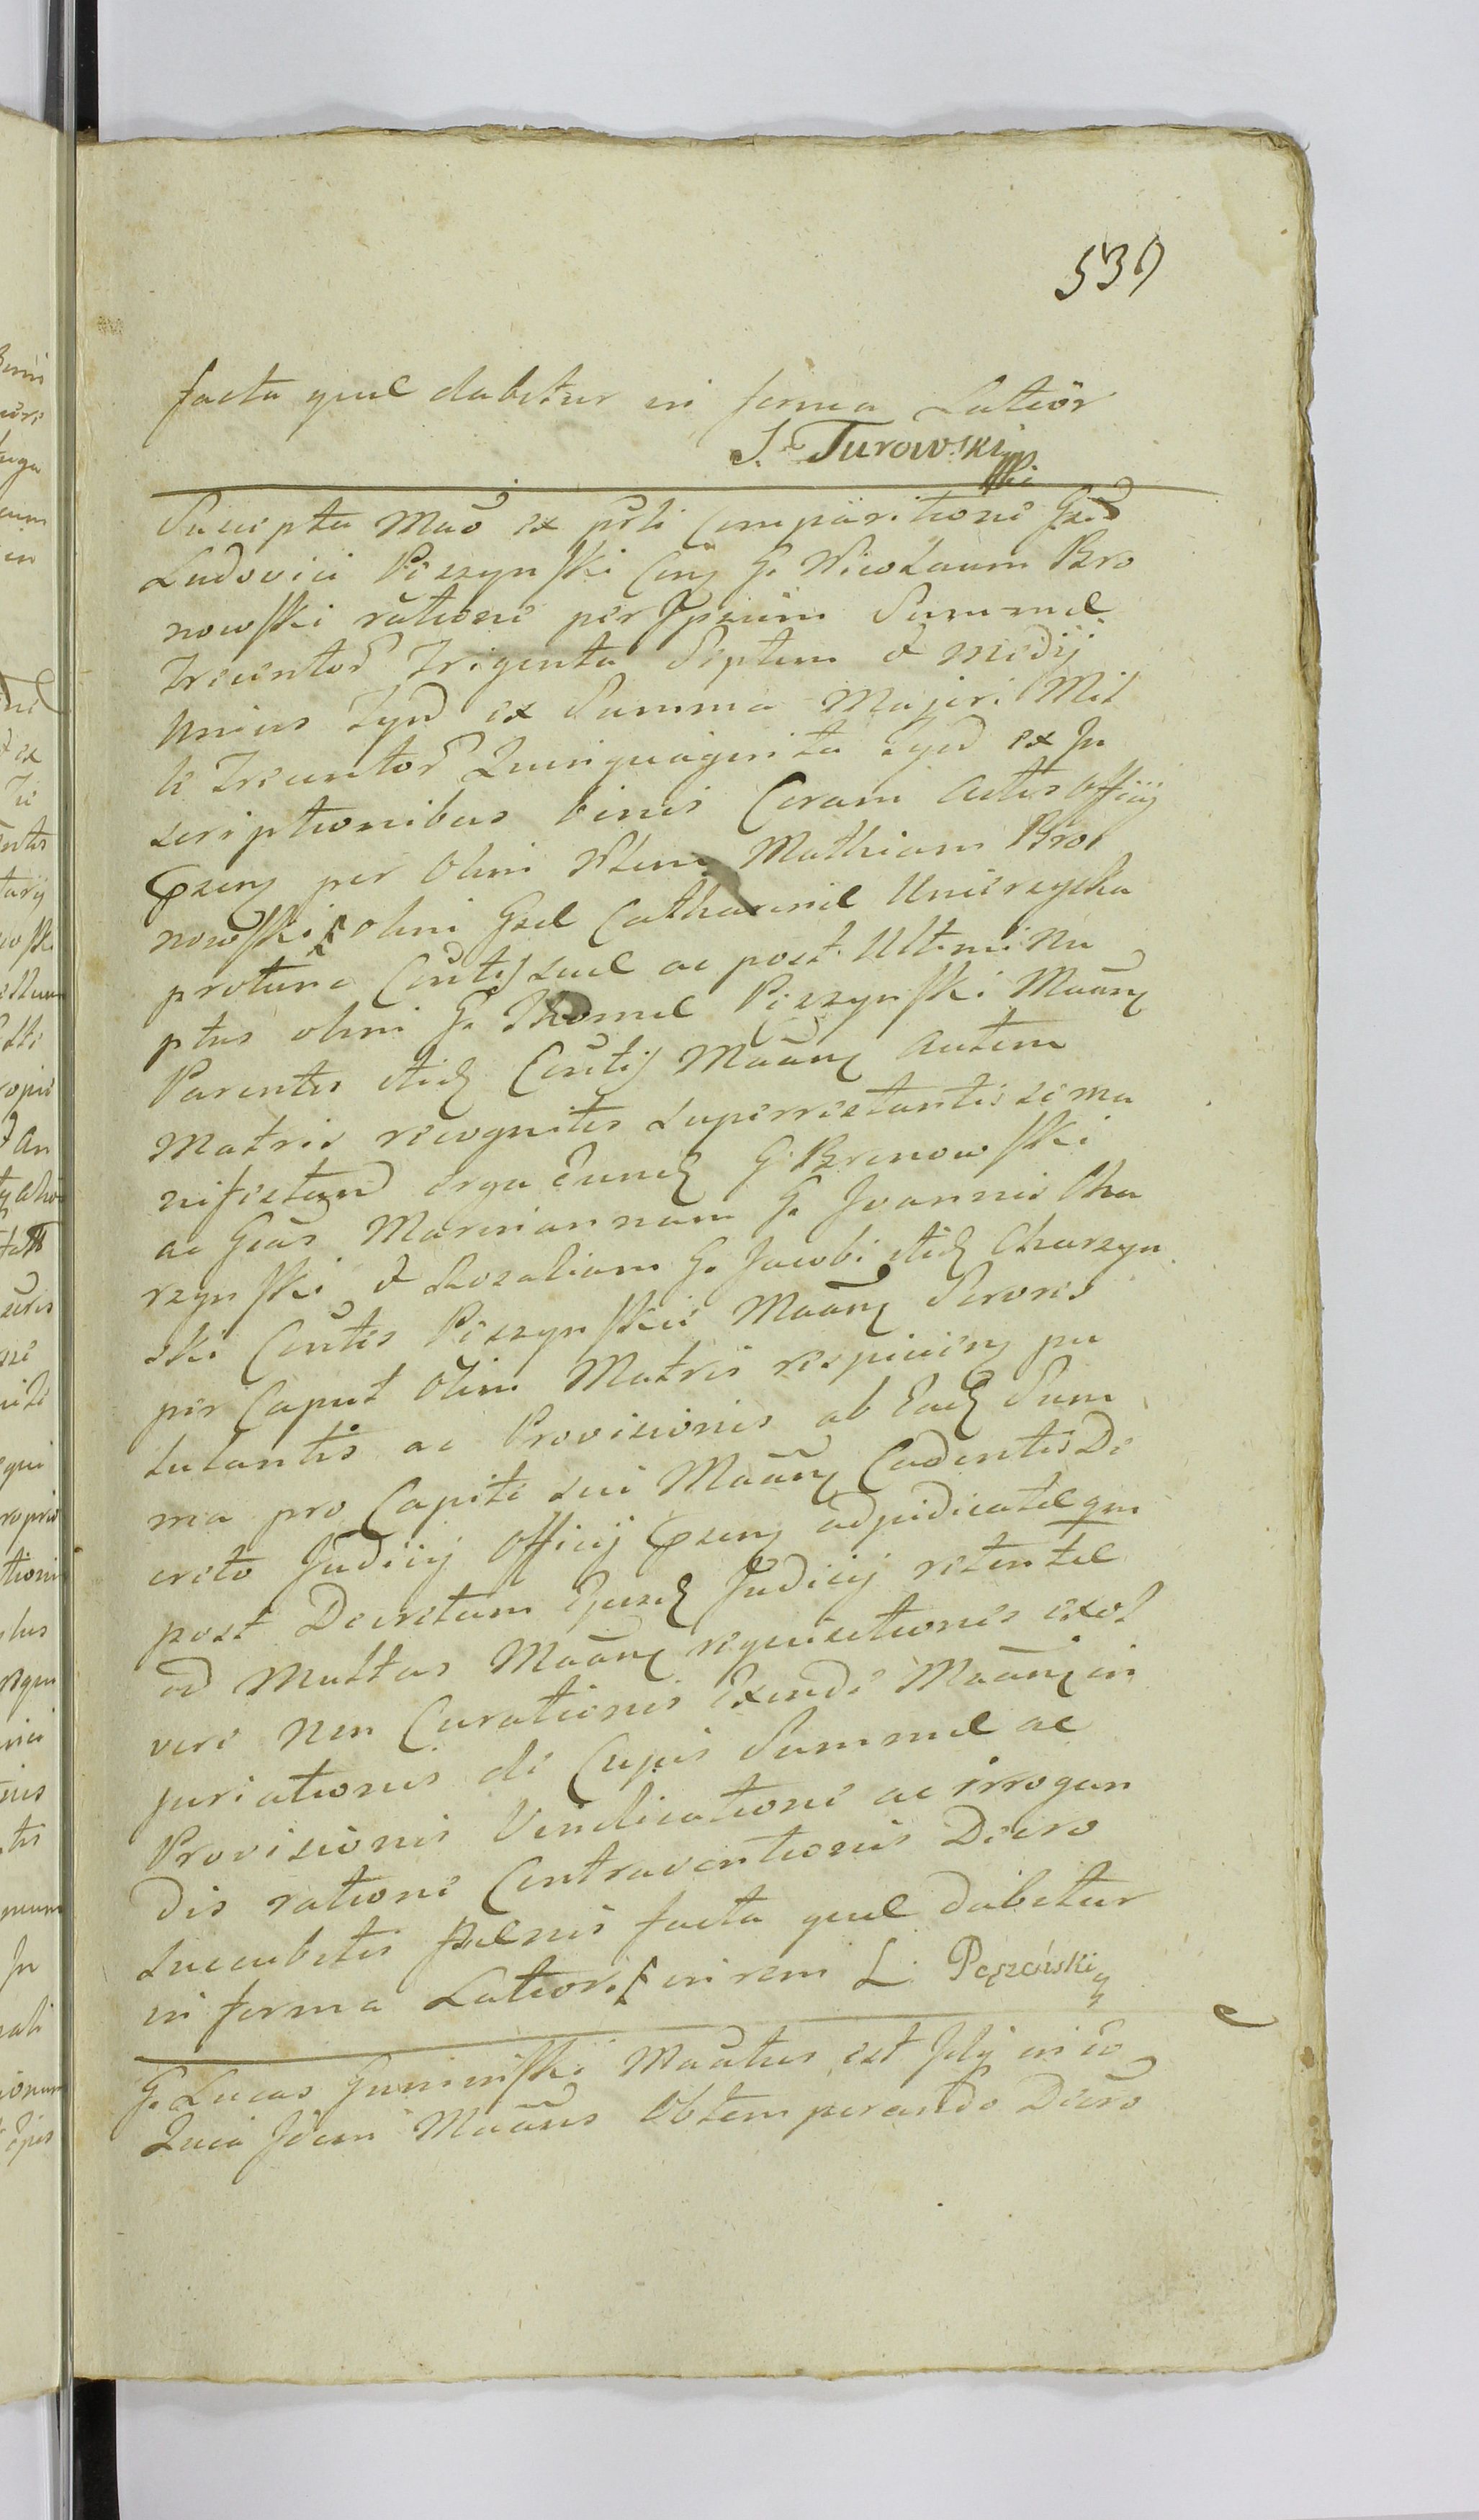 539
facta quae dabitur in forma Latiōr
S. Turowski
Suscepta Mãõ ex prli Comparitione Gsi
Ludovici Pęszynski Conꝫ G. Nicolaum Bro
nowski ratione per Ipsum Summae
Trecentor Triginta Septem & medij
unius Tynf ex Summa Majori Mil
le Trecentor Quinquaginta Tynf ex In
scriptionibus binis Coram Actis Officij
per olim Mathiam Bro
nowski olim Gsae Catharinae Unierzyska
protunc Conts suae ac post Ultimi Nu
ptus olim G. Thomae Pęszynski Mããnꝫ
Parentis itidꝫ Conts Mããnꝫ autem
Matris recognitis superrestantis se ma
nifestand erga Eundꝫ G. Bronowski
ac Gēās Mariannam G. Joannis Cha
rzynski & Rosaliam G. Jacobi itidꝫ Charzyn
ski Contes Pęszynskie Mããnꝫ Sorores
per Caput olim Matris respicienꝫ pu
lulantis ac Provisionis ab Eadꝫ Sum
ma pro Capite sui Mããnꝫ Cadentis De
creto Judicij Officij adjudicatae qm
post Decretum Ejusdꝫ Judicij retentae
ad Multas Mããnꝫ requisitiones exol
vere non Curationis Exinde Mããnꝫ in
juriationis de Cujus Summae ac
Provisionis Vendicatione ac irrogan
dis ratione Contraventionis Decro
succubitis paenis facta quae dabitur
in forma Latiori in rem L. Pęszenski
G. Lucas Guninski Mãātus est Jdꝫ in eo
Quia Idem Mããns Obtemperando Decro